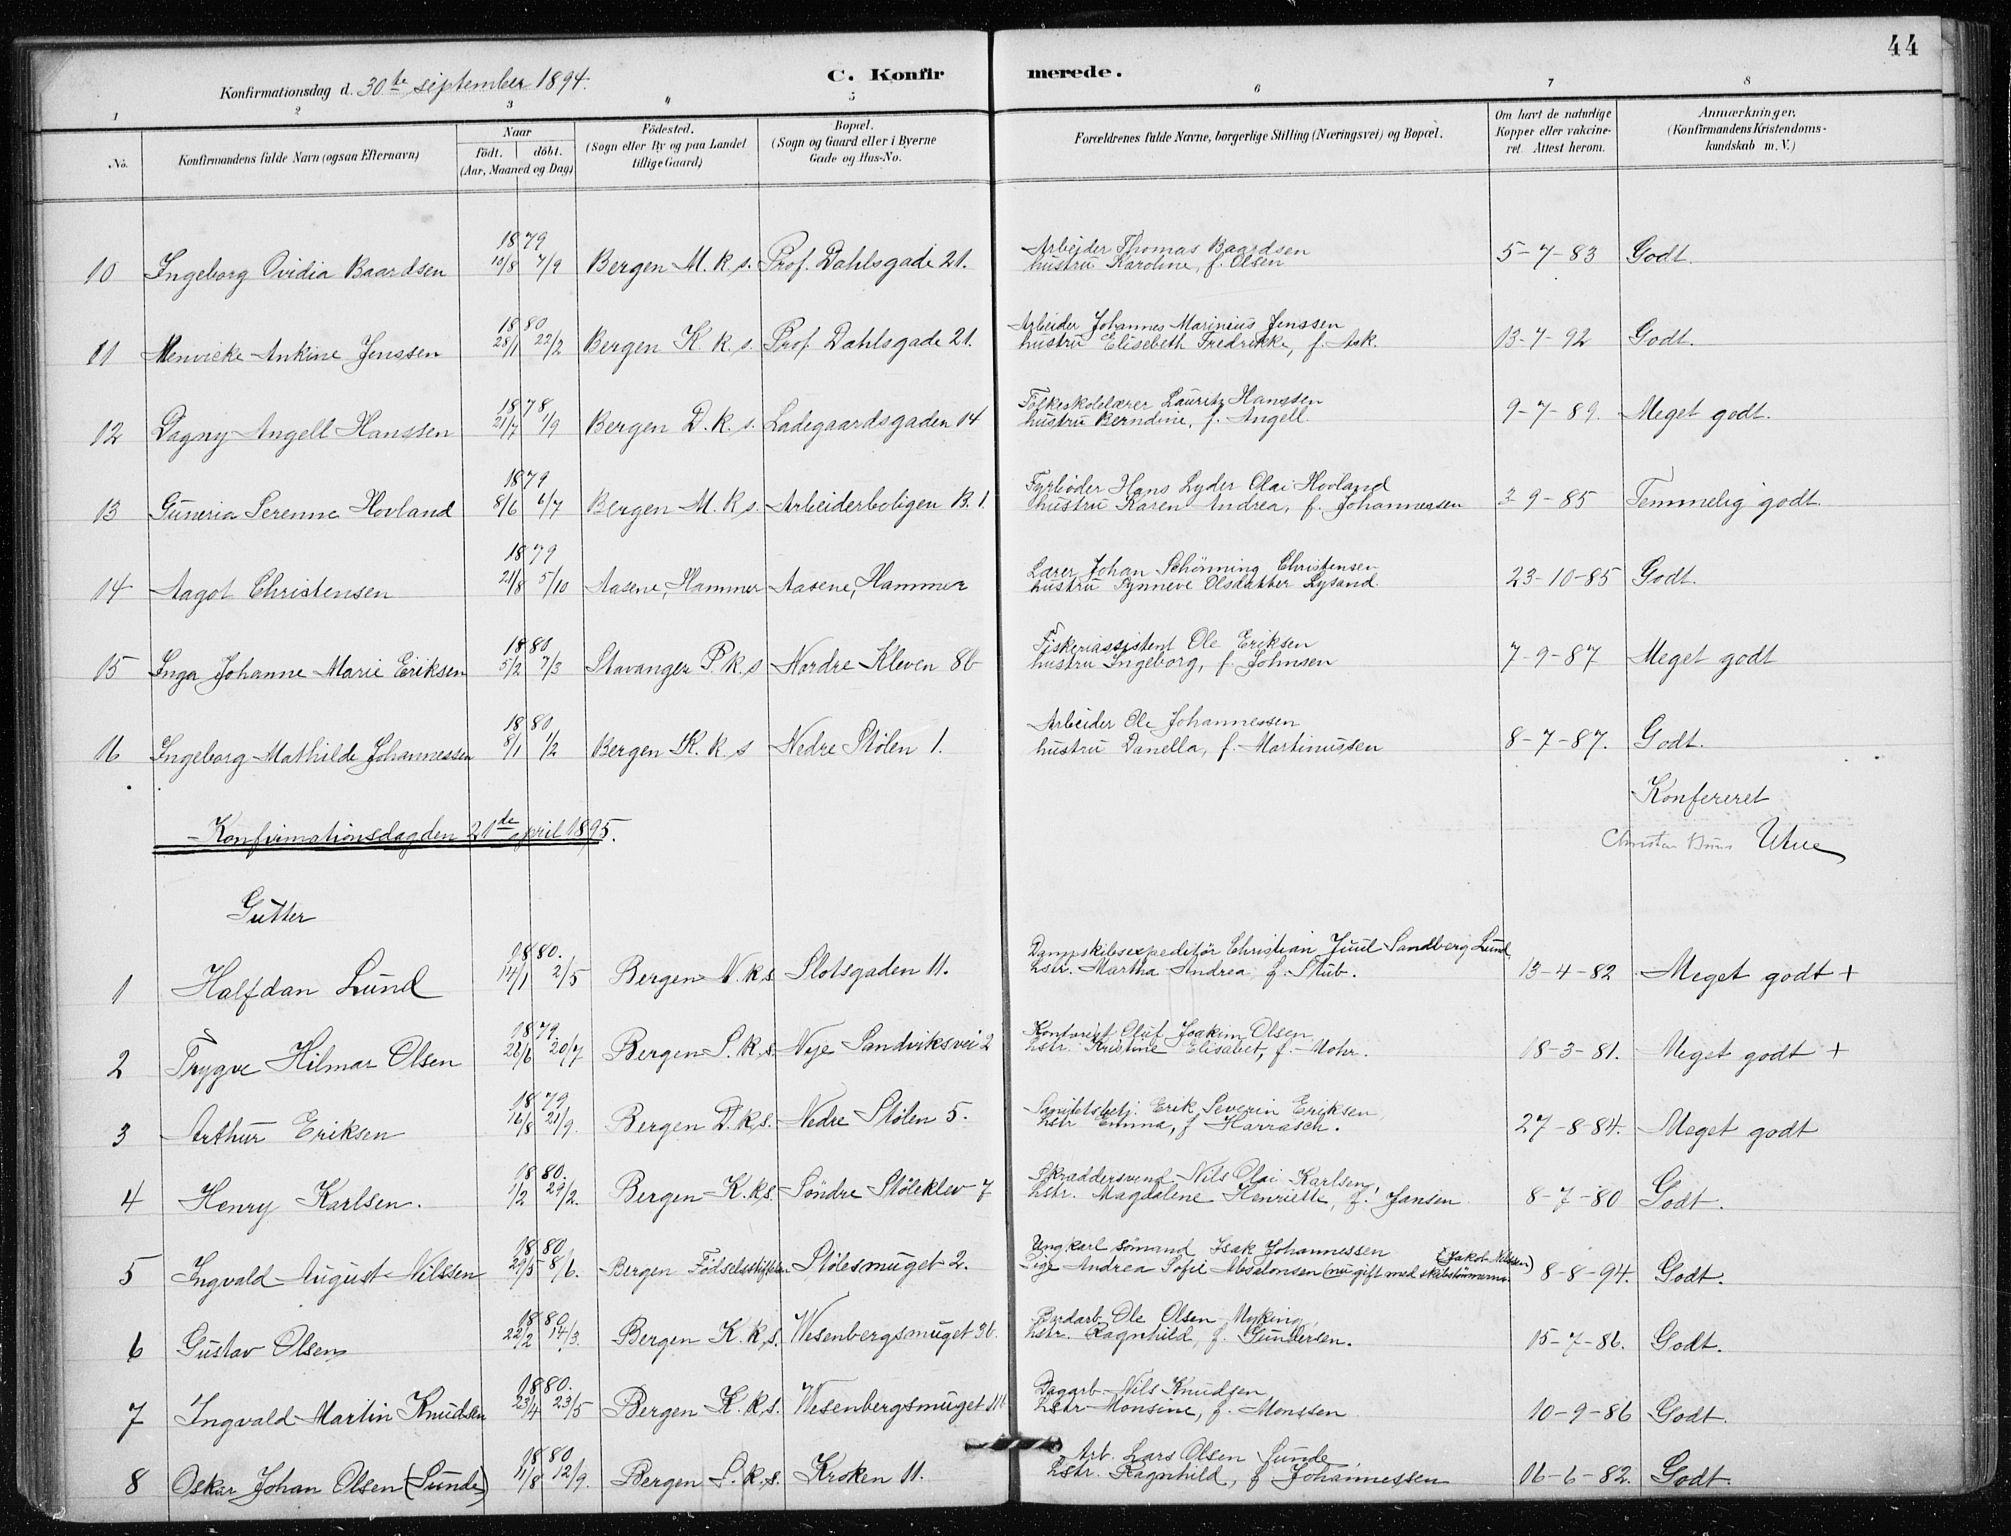 44
Konfirmationsdag d. 30te september 1894. C. Konfirmerede.
1 2 3 4 5 6 7 8
No. Konfirmandens fulde Navn (ogsaa Efternavn)
Naar
födt. döbt.
(Aar, Maaned og Dag)
Födested.
(Sogn eller By og paa Landet
tillige Gaard)
Bopæl.
(Sogn og Gaard eller i Byerne
Gade og Hus-No.
Forældrenes fulde Navne, borgerlige Stilling (Næringsvei) og Bopæl.
Om havt de naturlige
Kopper eller vakcine-
ret. Attest herom.
Anmærkninger.
(Konfirmandens Kristendoms-
kundskab m. V.)
1879 Arbeider Thomas Baardsen
10 Ingeborg Ovidia Baardsen 10/8 7/9 Bergen M. k. s. Prof. Dahlsgade 21. hustru Karoline, f. Olsen 5-7-83 Godt.
1880 Arbeider Johannes Marinius Jenssen
11 Henvicke Ankine Jenssen 28/1 22/2 Bergen K. k. s. Prof. Dahlsgade 21. hustru Elisebeth Fredrikke, f. Ask. 13-7-92 Godt.
1878 Folkeskolelærer Lauritz Hanssen
12 Dagny Angell Hanssen 21/7 1/9 Bergen D. k. s. Ladegaardsgaden 14 hustru Berndine, f. Angell. 9-7-89. Meget godt.
1879 Fyrbøder Hans Lyder Olai Hovland
13 Guneria Serenne Hovland 8/6 6/7 Bergen M. k s. Arbeiderboligen B. 1 hustru Karen Andrea, f. Johannessen 3-9-85 Temmelig godt.
1879 Lærer Johan Schönning Christensen
14 Aagot Christensen 21/8 5/10 Aasene, Hammer Aasene, Hammer hustru Synneve Olsdatter Lysand. 23-10-85 Godt.
1880 Fiskeriassistent Ole Eriksen
15 Inga Johanne Marie Eriksen 5/2 7/3 Stavanger P. k. s Nordre Kleven 8b hustru Ingeborg, f. Johnsen 7-9-87 Meget godt
1880 Arbeider Ole Johannessen
16 Ingeborg Mathilde Johannessen 8/1 1/2 Bergen K. k. s Nedre Stølen 1. hustru Danella, f. Martinussen 8-7-87. Godt.
Konfereret
Konfirmationsdag den 21de april 1895.
Gutter
1880. Dampskibsexpeditör Christian Juul Sandberg Lund
1 Halfdan Lund 14/1 2/5 Bergen N. k. s Slotsgaden 11. hstr. Martha Andrea f. Stub. 13-4-82 Meget godt +
1879. Kontorist Oluf Joakim Olsen
2 Trygve Hilmar Olsen 22/6 20/7 Bergen S. k. s. Nye Sandviksvei 2 hstr. Kristine Elisabet, f. Mohr. 18-3-81. Meget godt +
1879 Sanitetsbetj. Erik Severin Eriksen
3 Arthur Eriksen 16/8 21/9. Bergen D. k. s. Nedre Stølen 5. hstr Emma, f Harrasch. 27-8-84. Meget godt
1880. Skraddersvend Nils Olai Karlsen
4 Henry Karlsen. 1/2 29/2. Bergen K. k. s. Söndre Støleklev 7 hstr. Magdalene Henriette, f. Jansen 8-7-80 Godt.
1880 Ungkarl sömand Isak Johannessen (Jakob Nilssen)
5 Ingvald August Nilssen 29/5 8/6. Bergen Födselsstiftelsen Stølesmuget 2. Pige Andrea Sofie Absalonsen (nu gift med skibstömmerm. 8-8-94. Godt.
1880 Ole Olsen Myking,
6 Gustav Olsen 22/2 14/3. Bergen K. k. s. Wesenbergsmuget 3b. hstr. Ragnhild, f. Gundersen. 15-7-86. Godt.
1880. Dagarb. Nils Knudsen
7 Ingvald Martin Knudsen 23/4 23/5 Bergen K. k. s. Wesenbergsmuget hstr. Monsine, f. Monssen 10-9-86 Godt.
1880 Arb. Lars Olsen Sunde
8 Oskar Johan Olsen (Sunde) 11/8 12/9. Bergen S. k. s. Kroken 11. hstr. Ragnhild, f Johannessen 16-6-82. Godt.